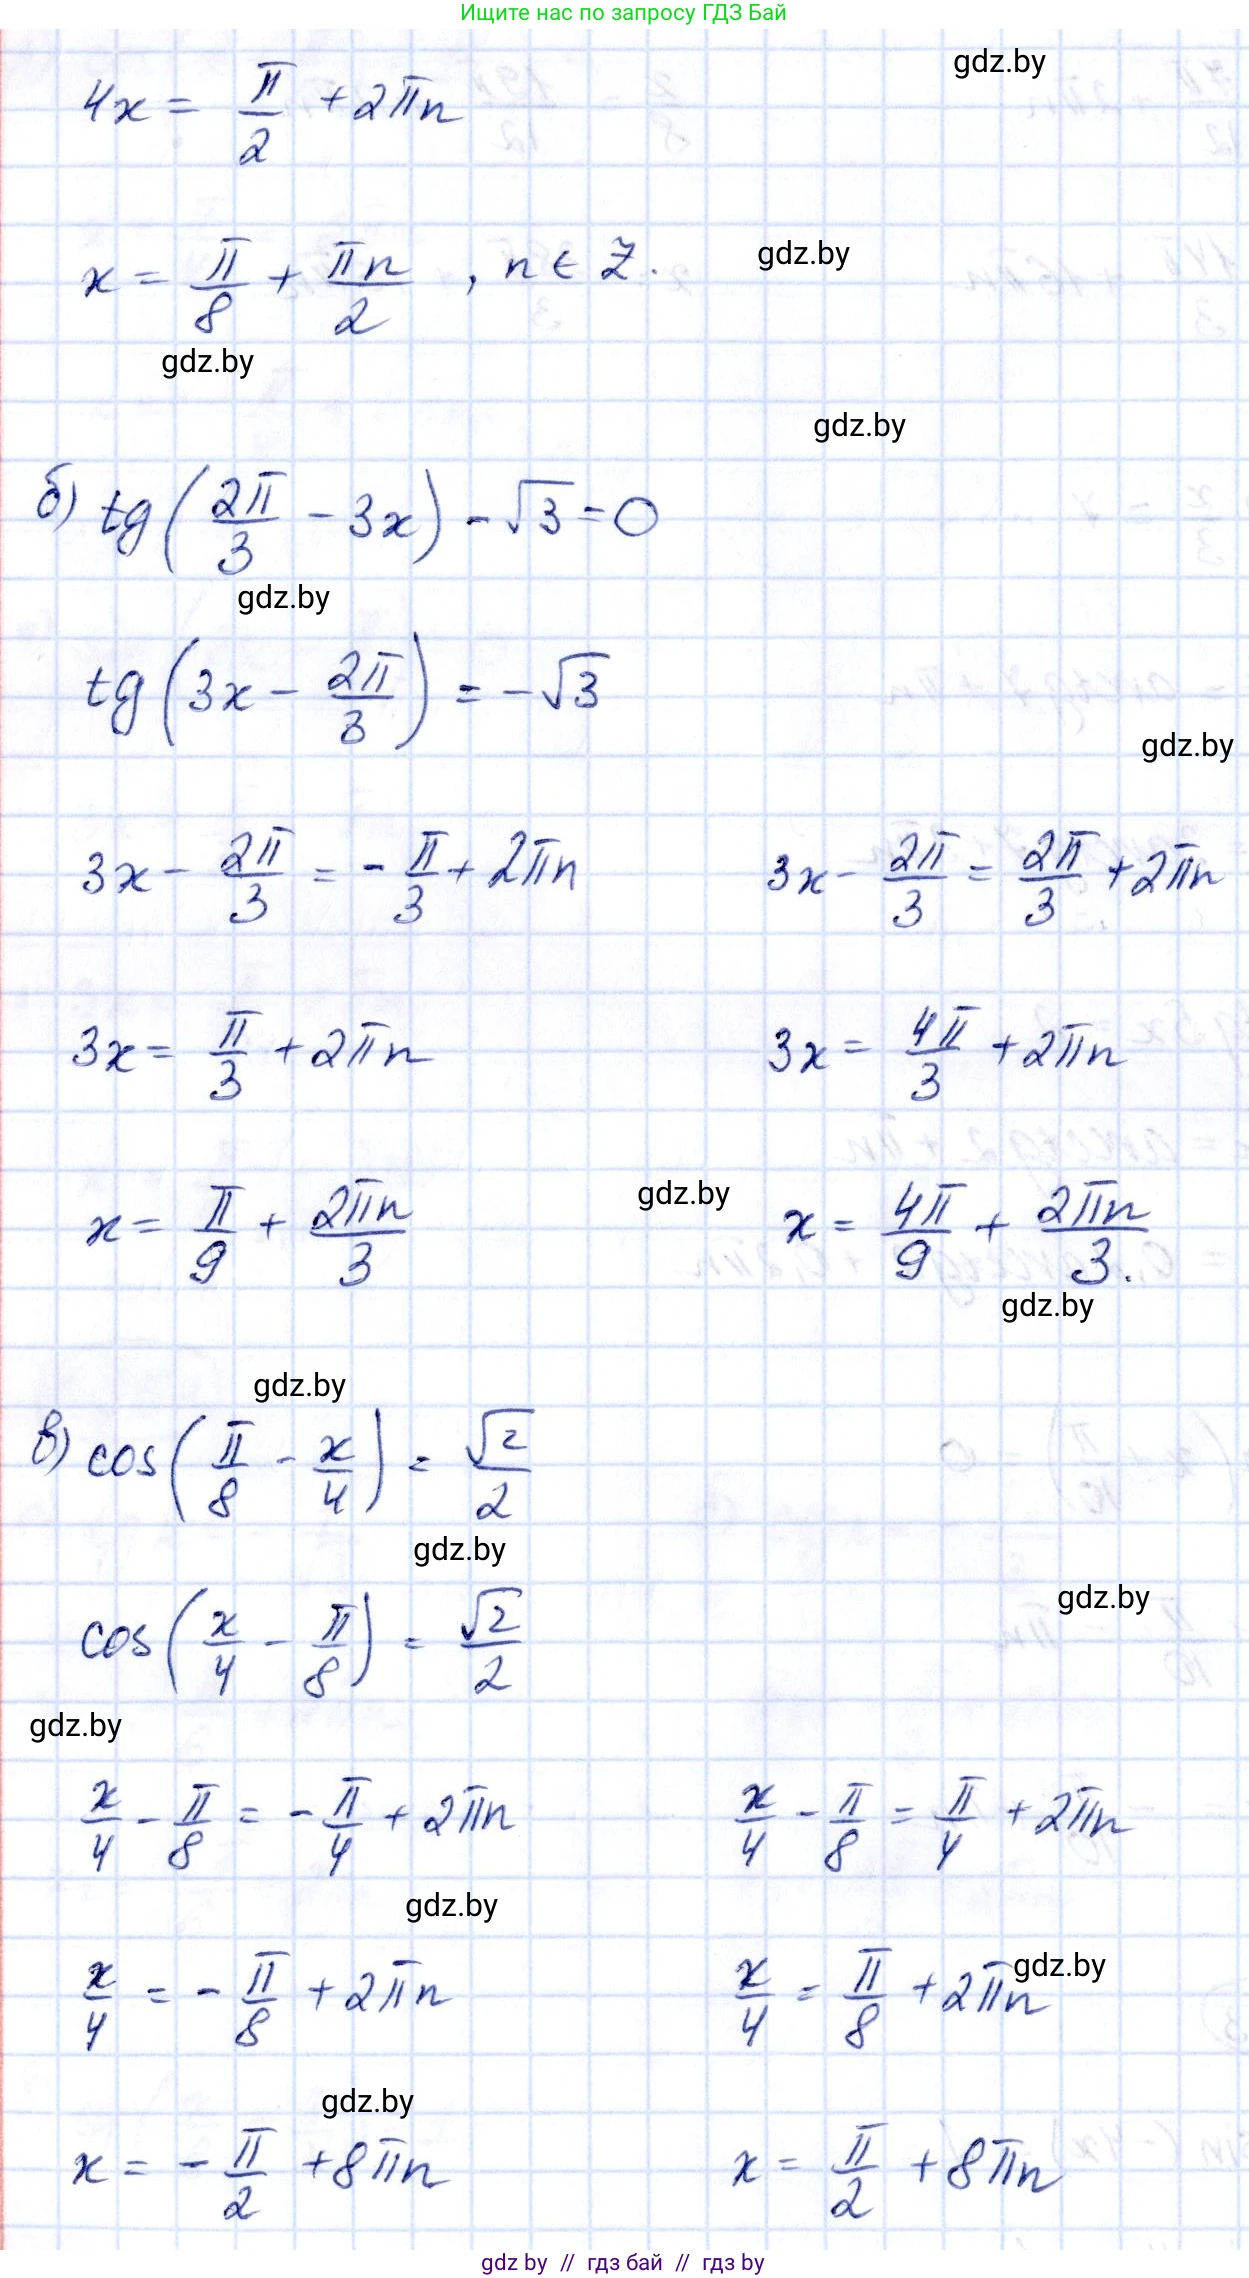 Ищите нас по запросу ГДЗ Бай
gdz.by
4x = π/2 + 2πn
gdz.by
x = π/8 + πn/2 , n ∈ Z.
gdz.by
gdz.by
б) tg(2π/3 - 3x) - √3 = 0
gdz.by
tg(3x - 2π/3) = -√3
gdz.by
3x - 2π/3 = -π/3 + 2πn 3x - 2π/3 = 2π/3 + 2πn
3x = π/3 + 2πn 3x = 4π/3 + 2πn
gdz.by
x = π/9 + 2πn/3 x = 4π/9 + 2πn/3.
gdz.by
gdz.by
в) cos(π/8 - x/4) = √2/2
gdz.by
gdz.by
cos(x/4 - π/8) = √2/2
gdz.by
x/4 - π/8 = -π/4 + 2πn x/4 - π/8 = π/4 + 2πn
gdz.by
gdz.by
x/4 = -π/8 + 2πn x/4 = π/8 + 2πn
gdz.by
x = -π/2 + 8πn x = π/2 + 8πn
gdz by // гдз бай // гдз by